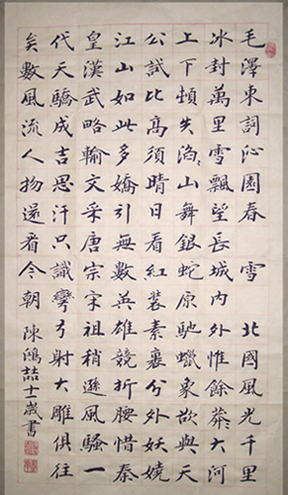 毛澤東詞沁園春 雪 北國風光千里
冰封萬里雪飄望長城內外惟餘莽々大河
上下頓失滔々山舞銀蛇原馳蠟象欲與天
公試比高須晴日看紅裝素裹分外妖嬈
江山如此多嬌引無數英雄競折腰惜秦
皇漢武略輸文采唐宗宋祖稍遜風騷一
代天驕成吉思汗只識彎弓射大雕俱往
矣數風流人物還看今朝 陳鴻喆十一歲書